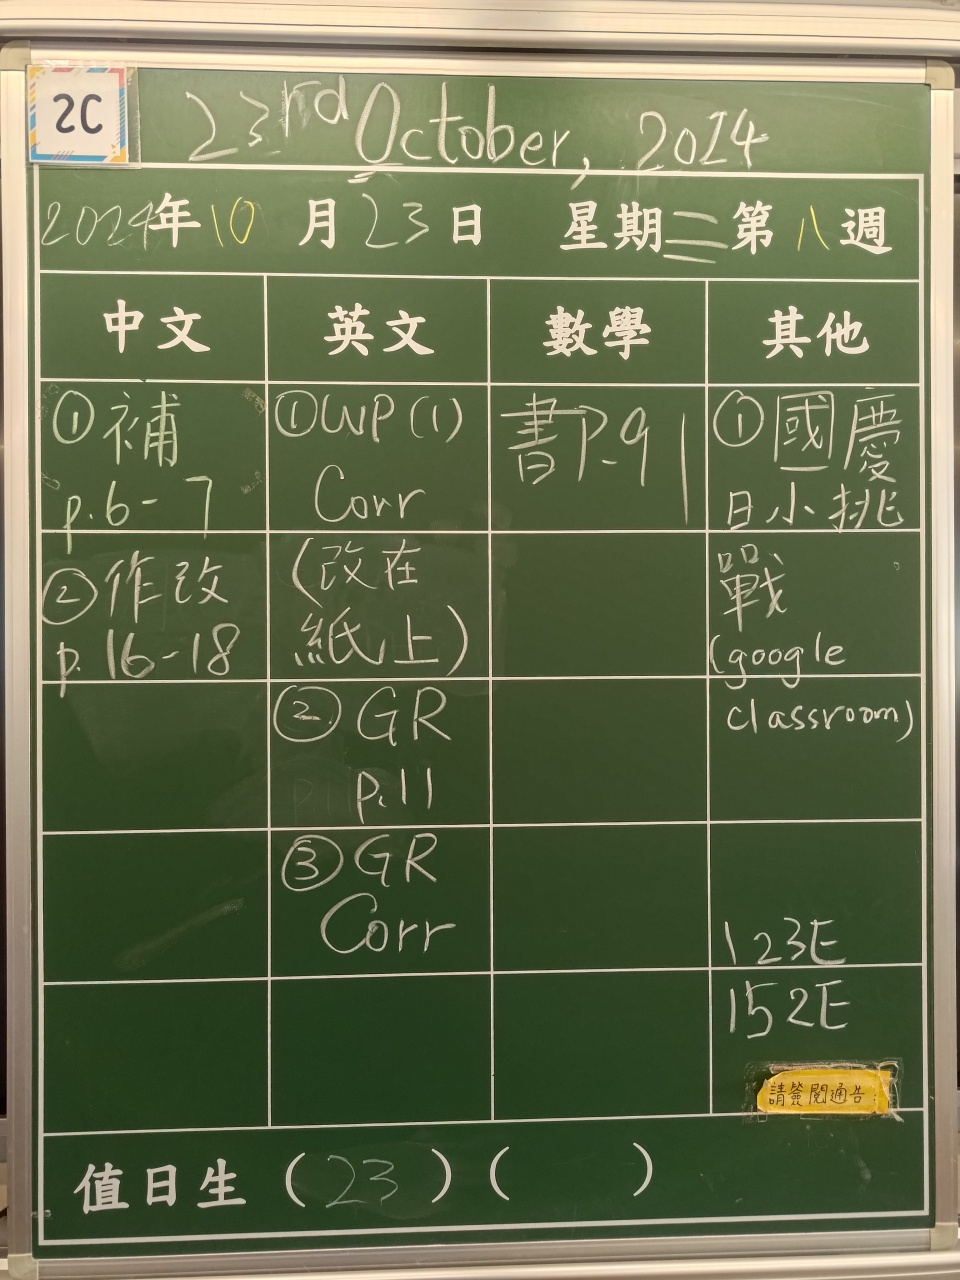 2C
23rd October, 2024
2024年10月23日 星期三 第八週
中文 英文 數學 其他
①補
p.6-7
②作改
p.16-18
①WP(1)
Corr
(改在
紙上)
②GR
p.11
③GR
Corr
書P.91
①國慶
日小挑
戰
(google
classroom)
123E
152E
請簽閱通告
值日生 (23) ( )